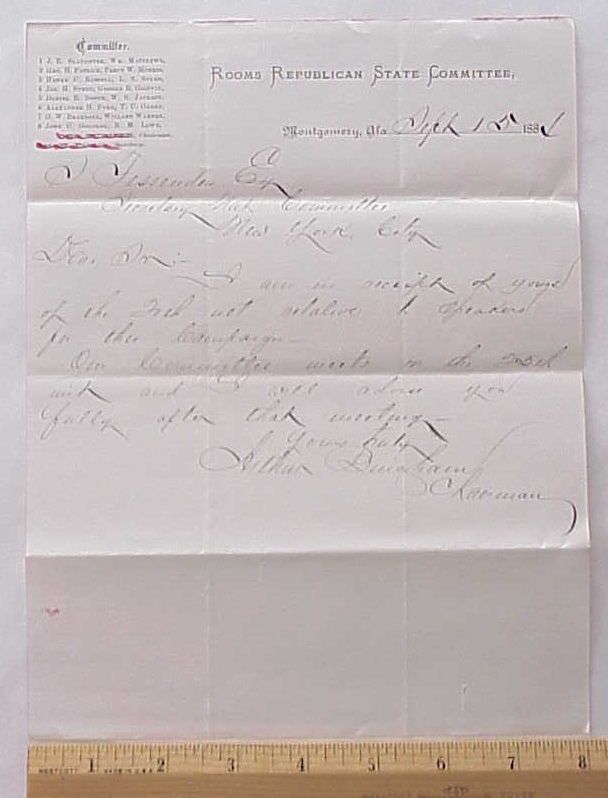 Committee.
1 J. E. Slaughter, Wm. Matthews,
2 Geo. H. Patrick, Percy W. Morris,
4 Jos. H. Speed, George B.
5 Daniel B. Booth, W. S. Jackson,
6 Alexander H. T. C.
7 G. W. Braxdell, Willard Warner,
8 John C. Goodloe, R. M. Lowe,
Rooms Republican State Committee,
Montgomery, Ala. Sept 15 1884
J Fessenden Esq
Secretary Committee
New York City
Dear Sir:-
I am in receipt of yours
of the inst relative to speakers
for this Campaign-
Our Committee meets on the 23rd
inst and I will advise you
fully after that meeting-
Yours truly
Arthur Bingham
Chairman
WESTCOTT 1 MADE IN U.S.A. 2 3 4 5 6 7 8